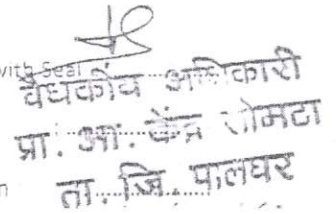 with Seal
वैद्यकीय अधिकारी
प्रा. आ. केंद्र सोमटा
ता. जि. पालघर